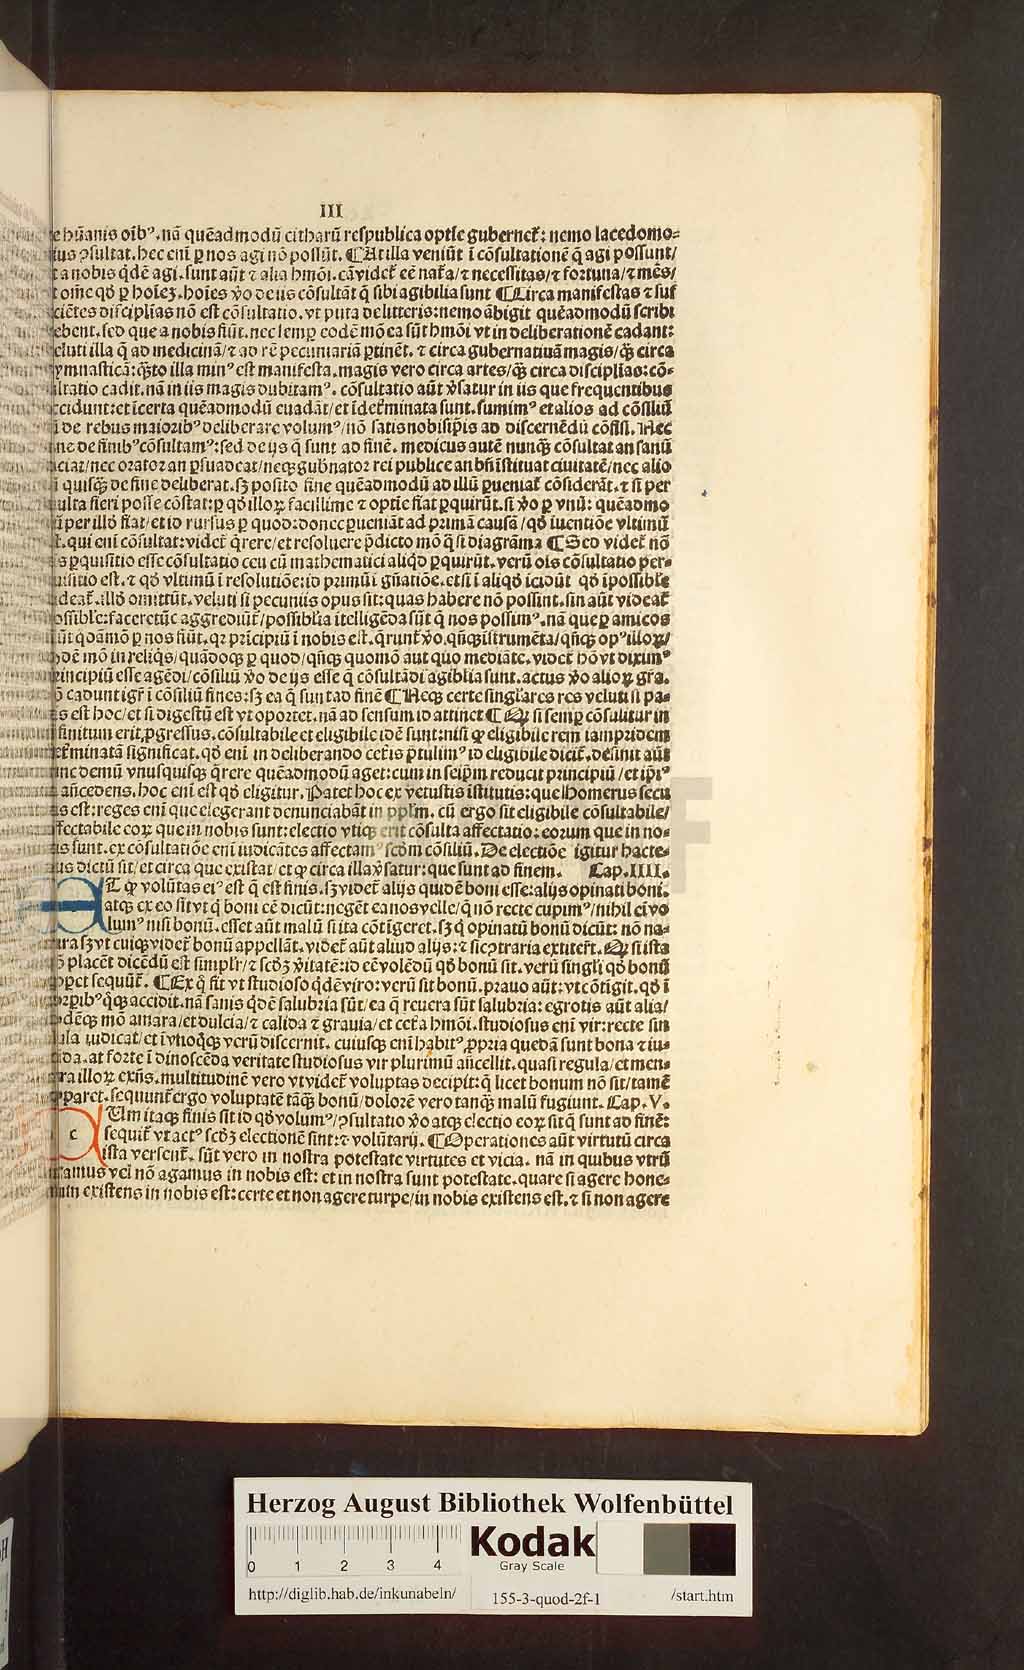 III
e hūanis oīb⁹. nā quēadmodū citharū respublica optīe gubernet̄: nemo lacedomo⸗
ius ꝯsultat. hec enī ꝑ nos agi nō possūt. ¶ At illa veniūt ī cōsultationē q̄ agi possunt/
t a nobis q̄dē agi. sunt aūt ⁊ alia hmōi. cā videt̄ eē nat̄a/⁊ necessitas/⁊ fortuna/⁊ mēs/
t oīne qd̄ ꝑ hoīeꝫ. hoīes v̄o de iis cōsultāt q̄ sibi agibilia sunt ¶ Circa manifestas ⁊ suf
ciētes disciplīas nō est cōsultatio. vt puta de litteris: nemo ābigit quēadmodū scribi
ebent. sed que a nobis fiūt. nec semꝑ eodē mō ea sūt hmōi vt in deliberationē cadant:
eluti illa q̄ ad medicinā/⁊ ad rē pecuniariā ꝑtinēt. ⁊ circa gubernatiuā magis/q̄ꝫ circa
ymnasticā: q̄ꝫto illa min⁹ est manifesta. magis vero circa artes/q̄ꝫ circa disciplīas: cō⸗
ultatio cadit. nā in iis magis dubitam⁹. cōsultatio aūt v̄satur in iis que frequentibus
ccidunt: et īcerta quēadmodū euadāt/et īdet̄minata sunt. sumim⁹ et alios ad cōsiliū
ī de rebus maiorib⁹ deliberare volum⁹/nō satis nobisip̄is ad discernēdū cōfisi. Nec
ne de finib⁹ cōsultam⁹: sed de ijs q̄ sunt ad finē. medicus autē nunq̄ꝫ cōsultat an sanū
ciat/nec orator an ꝑsuadeat/neqꝫ gub̄nator rei publice an bn̄ īstituat ciuitatē/nec alio
ī quisq̄ꝫ de fine deliberat. sꝫ posito fine quēadmodū ad illū ꝑueniat̄ cōsiderāt. ⁊ si per
ulta fieri posse cōstat: ꝑ qd̄ illoꝝ facillime ⁊ optīe fiat ꝑquirūt. si v̄o ꝑ vnū: quēadmo
ū per illd̄ fiat/et id rursus ꝑ quod: donec ꝑueniāt ad primā causā/qd̄ īuentiōe vltimū
t. qui enī cōsultat: videt̄ q̄rere/et resoluere p̄dicto mō q̄si diagrāma ¶ Sed videt̄ nō
s ꝑquisitio esse cōsultatio ceu cū mathematici aliqd̄ ꝑquirūt. verū oīs cōsultatio per⸗
uisitio est. ⁊ qd̄ vltimū ī resolutiōe: id primū ī gn̄atiōe. et si ī aliqd̄ īcidūt qd̄ īpossible
ideat̄. illd̄ omittūt. veluti si pecuniis opus sit: quas habere nō possint. sin aūt videat̄
ossible: facereqꝫ aggrediūt̄/possiblia ītelligēda sūt q̄ nos possim⁹. nā que ꝑ amicos
ūt qdāmō ꝑ nos fiūt. qꝛ prīcipiū ī nobis est. q̄runt̄ v̄o. qn̄qꝫ īstrumēta/qn̄qꝫ op⁹ illoꝝ/
dē mō in reliq̄s/quādoqꝫ ꝑ quod/qn̄qꝫ quomō aut quo mediāte. videt̄ hō vt dixim⁹
rincipiū esse agēdi/cōsiliū v̄o de ijs esse q̄ cōsultādi agiblia sunt. actus v̄o alioꝝ gra.
ō cadunt igr̄ ī cōsiliū fines: sꝫ ea q̄ sunt ad finē ¶ Neqꝫ certe singlares res veluti si pa⸗
s est hoc/et si digestū est vt oportet. nā ad sensum id attinet ¶ Qꝫ si semꝑ cōsulitur in
finitum erit ꝓgressus. cōsultabile et eligibile idē sunt: nisi qꝫ eligibile rem iampridem
et̄minatā significat. qd̄ enī in deliberando cet̄is p̄tulim⁹ id eligibile dicit̄. desinit aūt
inc demū vnusquisqꝫ q̄rere quēadmodū aget: cum in seip̄m reducit principiū/et ip̄i⁹
an̄cedens. hoc enī est qd̄ eligitur. Patet hoc ex vetustis īstitutis: que Homerus secu
s est: reges enī que elegerant denunciabāt in pplm̄. cū ergo sit eligibile cōsultabile/
ffectabile eoꝝ que in nobis sunt: electio vtiqꝫ erit cōsulta affectatio: eorum que in no⸗
is sunt. ex cōsultatiōe enī iudicātes affectam⁹ scd̄m cōsiliū. De electiōe igitur hacte⸗
us dictū sit/et circa que existat/et qꝫ circa illa v̄satur: que sunt ad finem. Cap. IIII.
T qꝫ volūtas ei⁹ est q̄ est finis. sꝫ videt̄ alijs quidē boni esse: alijs opinati boni.
atqꝫ ex eo sit vt q̄ boni eē dicūt: negēt ea nos velle/q̄ nō recte cupim⁹/nihil eī vo
lum⁹ nisi bonū. esset aūt malū si ita cōtigeret. sꝫ q̄ opinatū bonū dicūt: nō na⸗
ura sꝫ vt cuiqꝫ videt̄ bonū appellāt. videt̄ aūt aliud alijs: ⁊ si ꝯtraria extiterit. Qꝫ si ista
ō placēt dicēdū est simplr̄/⁊ scd̄ꝫ v̄itatē: id eē volēdū qd̄ bonū sit. verū singlī qd̄ bonū
pꝑet sequūt̄. ¶ Ex q̄ fit vt studioso q̄dē viro: verū sit bonū. prauo aūt: vt cōtigit. qd̄ ī
orꝑib⁹ q̄qꝫ accidit. nā sanis q̄dē salubria sūt/ea q̄ reuera sūt salubria: egrotis aūt alia/
dēqꝫ mō amara/et dulcia/⁊ calida ⁊ grauia/et cet̄a hmōi. studiosus enī vir: recte sin
ula iudicat/et ī vnoq̄qꝫ verū discernit. cuiusqꝫ enī habit⁹ ꝓpria quedā sunt bona ⁊ iu⸗
ūda. at forte ī dinoscēda veritate studiosus vir plurimū an̄cellit. quasi regula/et men⸗
ra illoꝝ exn̄s. multitudinē vero vt videt̄ voluptas decipit: q̄ licet bonum nō sit/tamē
pparet. sequunt̄ ergo voluptatē tāq̄ꝫ bonū/dolorē vero tanq̄ꝫ malū fugiunt. Cap. V.
c Vm itaqꝫ finis sit id qd̄ volum⁹/ꝯsultatio v̄o atqꝫ electio eoꝝ sit q̄ sunt ad finē:
sequit̄ vt act⁹ scd̄ꝫ electionē sint: ⁊ volūtarij. ¶ Operationes aūt virtutū circa
ista versent̄. sūt vero in nostra potestate virtutes et vicia. nā in quibus vtrū
ramus vel nō agamus in nobis est: et in nostra sunt potestate. quare si agere hone⸗
um existens in nobis est: certe et non agere turpe/in nobis existens est. ⁊ si non agere
Herzog August Bibliothek Wolfenbüttel
0 1 2 3 4
Kodak
Gray Scale
http://diglib.hab.de/inkunabeln/ 155-3-quod-2f-1 /start.htm